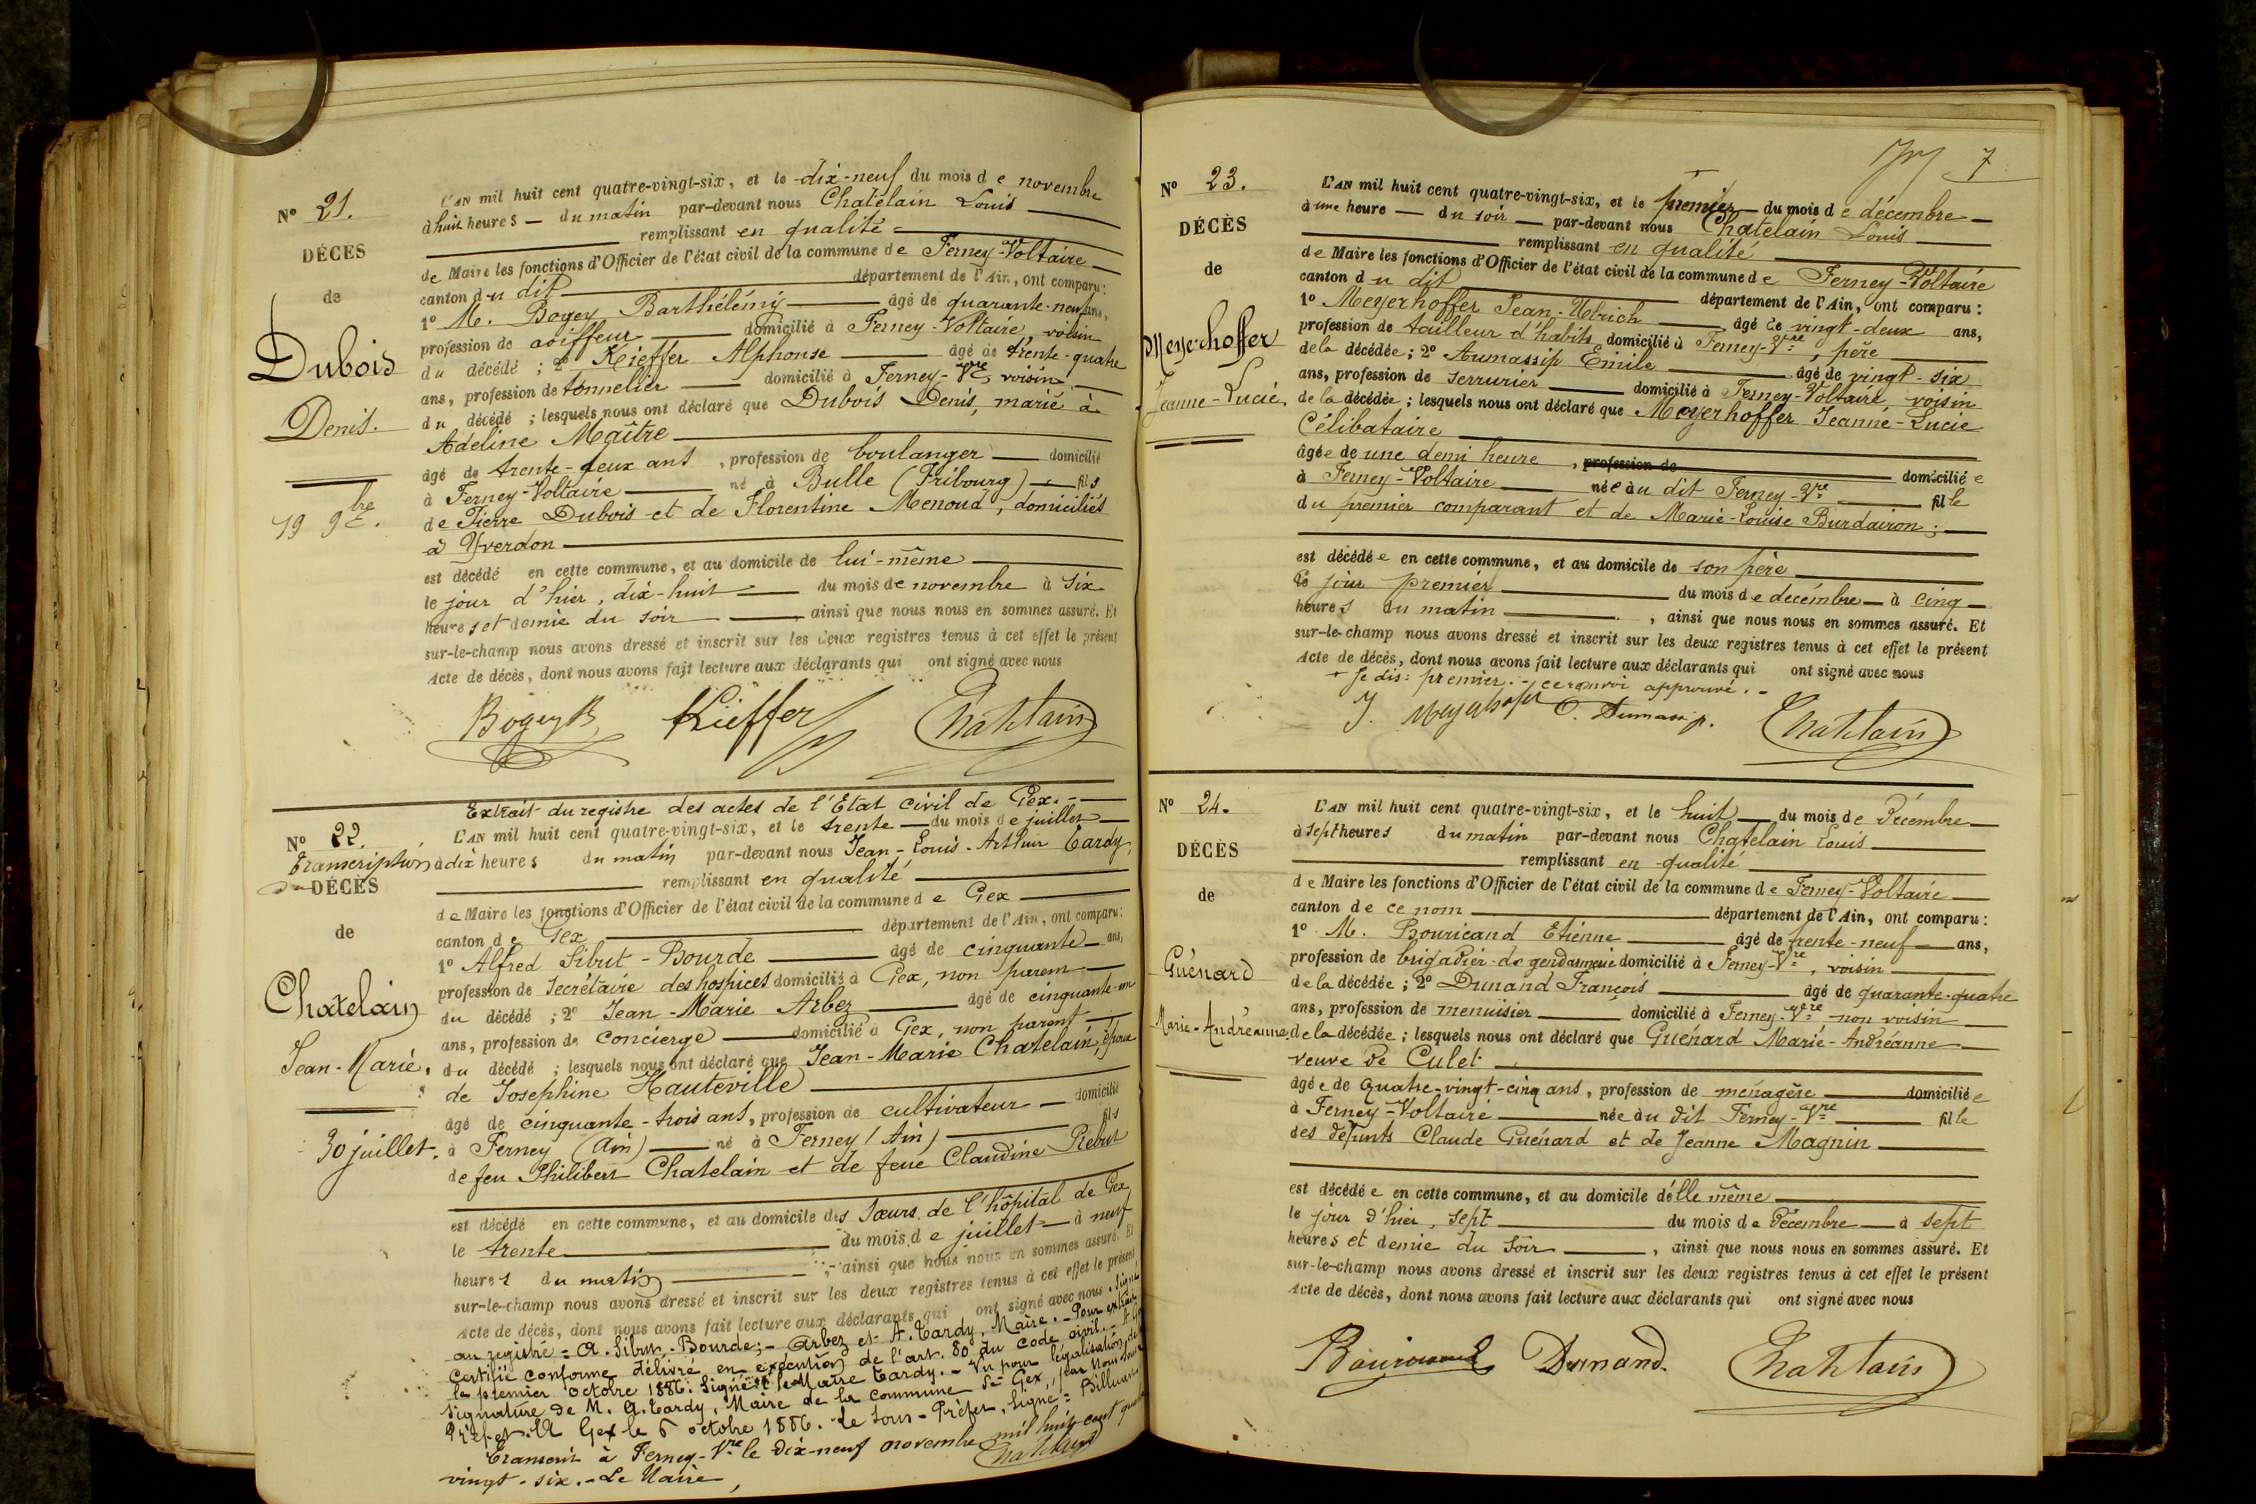 N° 21.
DÉCÈS
de
Dubois
Denis.
19 9bre.
L'AN mil huit cent quatre-vingt-six, et le dix-neuf du mois de novembre
à huit heures — du matin par-devant nous Chatelain Louis
remplissant en qualité
de Maire les fonctions d'Officier de l'état civil de la commune de Ferney-Voltaire
canton du dit département de l'Ain, ont comparu:
1° M. Bogey Barthélémy âgé de quarante-neuf ans,
profession de coiffeur domicilié à Ferney-Voltaire, voisin
du décédé ; 2° Kieffer Alphonse âgé de trente-quatre
ans, profession de tonnelier domicilié à Ferney-Vre, voisin
du décédé ; lesquels nous ont déclaré que Dubois Denis, marié à
Adeline Maître
âgé de trente-deux ans, profession de boulanger domicilié
à Ferney-Voltaire né à Bulle (Fribourg) fils
de Pierre Dubois et de Florentine Menoud, domiciliés
à Yverdon
est décédé en cette commune, et au domicile de lui-même
le jour d'hier, dix-huit du mois de novembre à six
heures et demie du soir ainsi que nous nous en sommes assuré. Et
sur-le-champ nous avons dressé et inscrit sur les deux registres tenus à cet effet le présent
Acte de décès, dont nous avons fait lecture aux déclarants qui ont signé avec nous
Bogey B Kieffer Chatelain
Extrait du registre des actes de l'Etat civil de Gex.
N° 22.
Transcription
du DÉCÈS
de
Chatelain
Jean-Marie.
30 juillet.
L'AN mil huit cent quatre-vingt-six, et le trente du mois de juillet
à dix heures du matin par-devant nous Jean-Louis-Arthur Tardy,
remplissant en qualité
de Maire les fonctions d'Officier de l'état civil de la commune de Gex
canton de Gex département de l'Ain, ont comparu:
1° Alfred Sibut-Bourde âgé de cinquante ans,
profession de secrétaire des hospices domicilié à Gex, non parent
du décédé ; 2° Jean-Marie Arbez âgé de cinquante-un
ans, profession de concierge domicilié à Gex, non parent
du décédé ; lesquels nous ont déclaré que Jean-Marie Chatelain, époux
de Josephine Hauteville
âgé de cinquante-trois ans, profession de cultivateur domicilié
à Ferney (Ain) né à Ferney (Ain) fils
de feu Philibert Chatelain et de feue Claudine Rebut
est décédé en cette commune, et au domicile des Sœurs de l'hôpital de Gex
le trente du mois de juillet à neuf
heures du matin ainsi que nous nous en sommes assuré. Et
sur-le-champ nous avons dressé et inscrit sur les deux registres tenus à cet effet le présent
Acte de décès, dont nous avons fait lecture aux déclarants qui ont signé avec nous. Signé
au registre = A. Sibut-Bourde; - Arbez et A. Tardy, Maire. - Pour extrait
certifié conforme délivré en exécution de l'art. 80 du code civil. - A Gex
le premier octobre 1886. Signé: le Maire Tardy. - Vu pour légalisation de la
signature de M. A. Tardy, Maire de la commune de Gex, par Nous Sous-
Préfet. A Gex le 6 octobre 1886. Le Sous-Préfet, Signé =
Transcrit à Ferney-Vre le dix-neuf novembre mil huit cent quatre
vingt-six. - Le Maire, Chatelain
7
N° 23.
DÉCÈS
de
Meyerhoffer
Jeanne-Lucie.
L'AN mil huit cent quatre-vingt-six, et le premier du mois de décembre
à une heure — du soir — par-devant nous Chatelain Louis
remplissant en qualité
de Maire les fonctions d'Officier de l'état civil de la commune de Ferney-Voltaire
canton du dit département de l'Ain, ont comparu:
1° Meyerhoffer Jean-Ulrich âgé de vingt-deux ans,
profession de tailleur d'habits domicilié à Ferney-Vre, père
de la décédée; 2° Aumassip Emile âgé de vingt-six
ans, profession de serrurier domicilié à Ferney-Voltaire voisin
de la décédée ; lesquels nous ont déclaré que Meyerhoffer Jeanne-Lucie
Célibataire
âgée de une demi heure, profession de domiciliée
à Ferney-Voltaire née au dit Ferney-Vre fille
du premier comparant et de Marie-Louise Burdairon;
est décédée en cette commune, et au domicile de son père
le jour premier du mois de décembre à cinq
heures du matin, ainsi que nous nous en sommes assuré. Et
sur-le-champ nous avons dressé et inscrit sur les deux registres tenus à cet effet le présent
Acte de décès, dont nous avons fait lecture aux déclarants qui ont signé avec nous
+ Je dis: premier. - ce renvoi approuvé. -
J. Meyerhofer E. Aumassip. Chatelain
N° 24.
DÉCÈS
de
Guénard
Marie-Andréanne.
L'AN mil huit cent quatre-vingt-six, et le huit du mois de Décembre
à sept heures du matin par-devant nous Chatelain Louis
remplissant en qualité
de Maire les fonctions d'Officier de l'état civil de la commune de Ferney-Voltaire
canton de ce nom département de l'Ain, ont comparu:
1° M. Bouricand Etienne âgé de trente-neuf ans,
profession de brigadier de gendarmerie domicilié à Ferney-Vre, voisin
de la décédée; 2° Dunand François âgé de quarante-quatre
ans, profession de menuisier domicilié à Ferney-Vre non voisin
de la décédée ; lesquels nous ont déclaré que Guénard Marie-Andréanne
veuve de Culet
âgée de Quatre-vingt-cinq ans, profession de ménagère domiciliée
à Ferney-Voltaire née au dit Ferney-Vre fille
des défunts Claude Guénard et de Jeanne Magnin
est décédée en cette commune, et au domicile d'elle même
le jour d'hier, sept du mois de Décembre à sept
heures et demie du soir, ainsi que nous nous en sommes assuré. Et
sur-le-champ nous avons dressé et inscrit sur les deux registres tenus à cet effet le présent
Acte de décès, dont nous avons fait lecture aux déclarants qui ont signé avec nous
Bouricand Dunand. Chatelain